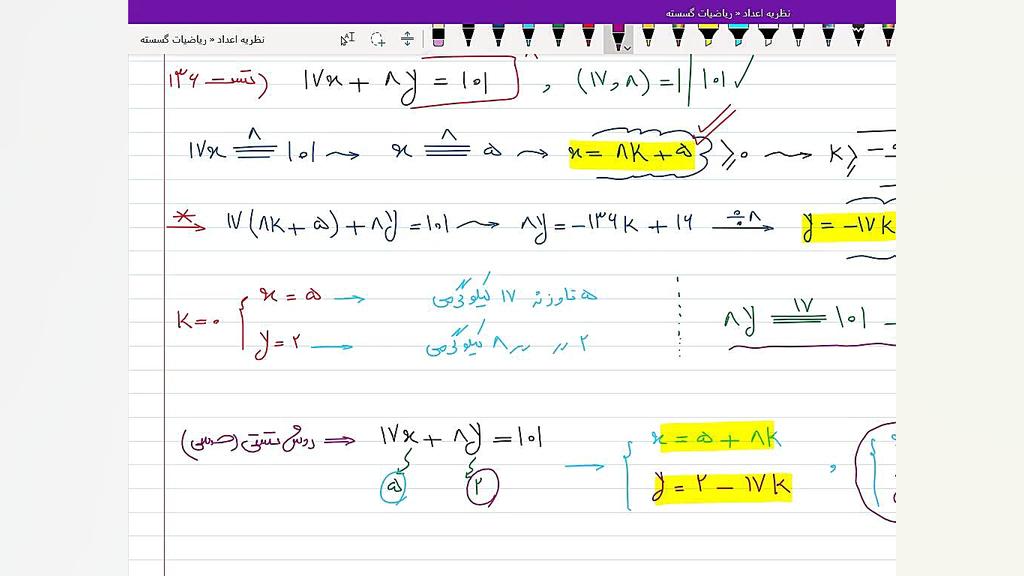 نظریه اعداد « ریاضیات گسسته
نظریه اعداد « ریاضیات گسسته
تست ۱۳۶) ۱۷x + ۸y = ۱۰۱ , (۱۷,۸) = ۱ | ۱۰۱ ✓
۱۷x ≡ ۱۰۱ (۸) → x ≡ ۵ (۸) → x = ۸k + ۵ ≥ ۰ → k ≥
* → ۱۷(۸k + ۵) + ۸y = ۱۰۱ → ۸y = -۱۳۶k + ۱۶ ÷۸ → y = -۱۷k
k = ۰ { x = ۵ → ۵ تا وزنه ۱۷ کیلوگرمی
y = ۲ → ۲ 〃 〃 ۸ کیلوگرمی
۸y ≡ ۱۰۱ (۱۷)
روش تستی (حدسی) ⇒ ۱۷x + ۸y = ۱۰۱ → { x = ۵ + ۸k
۵ ۲ y = ۲ - ۱۷k ,